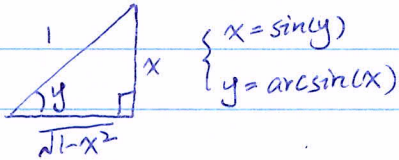 1
x
y
√1-x²
{ x = sin(y)
y = arcsin(x)